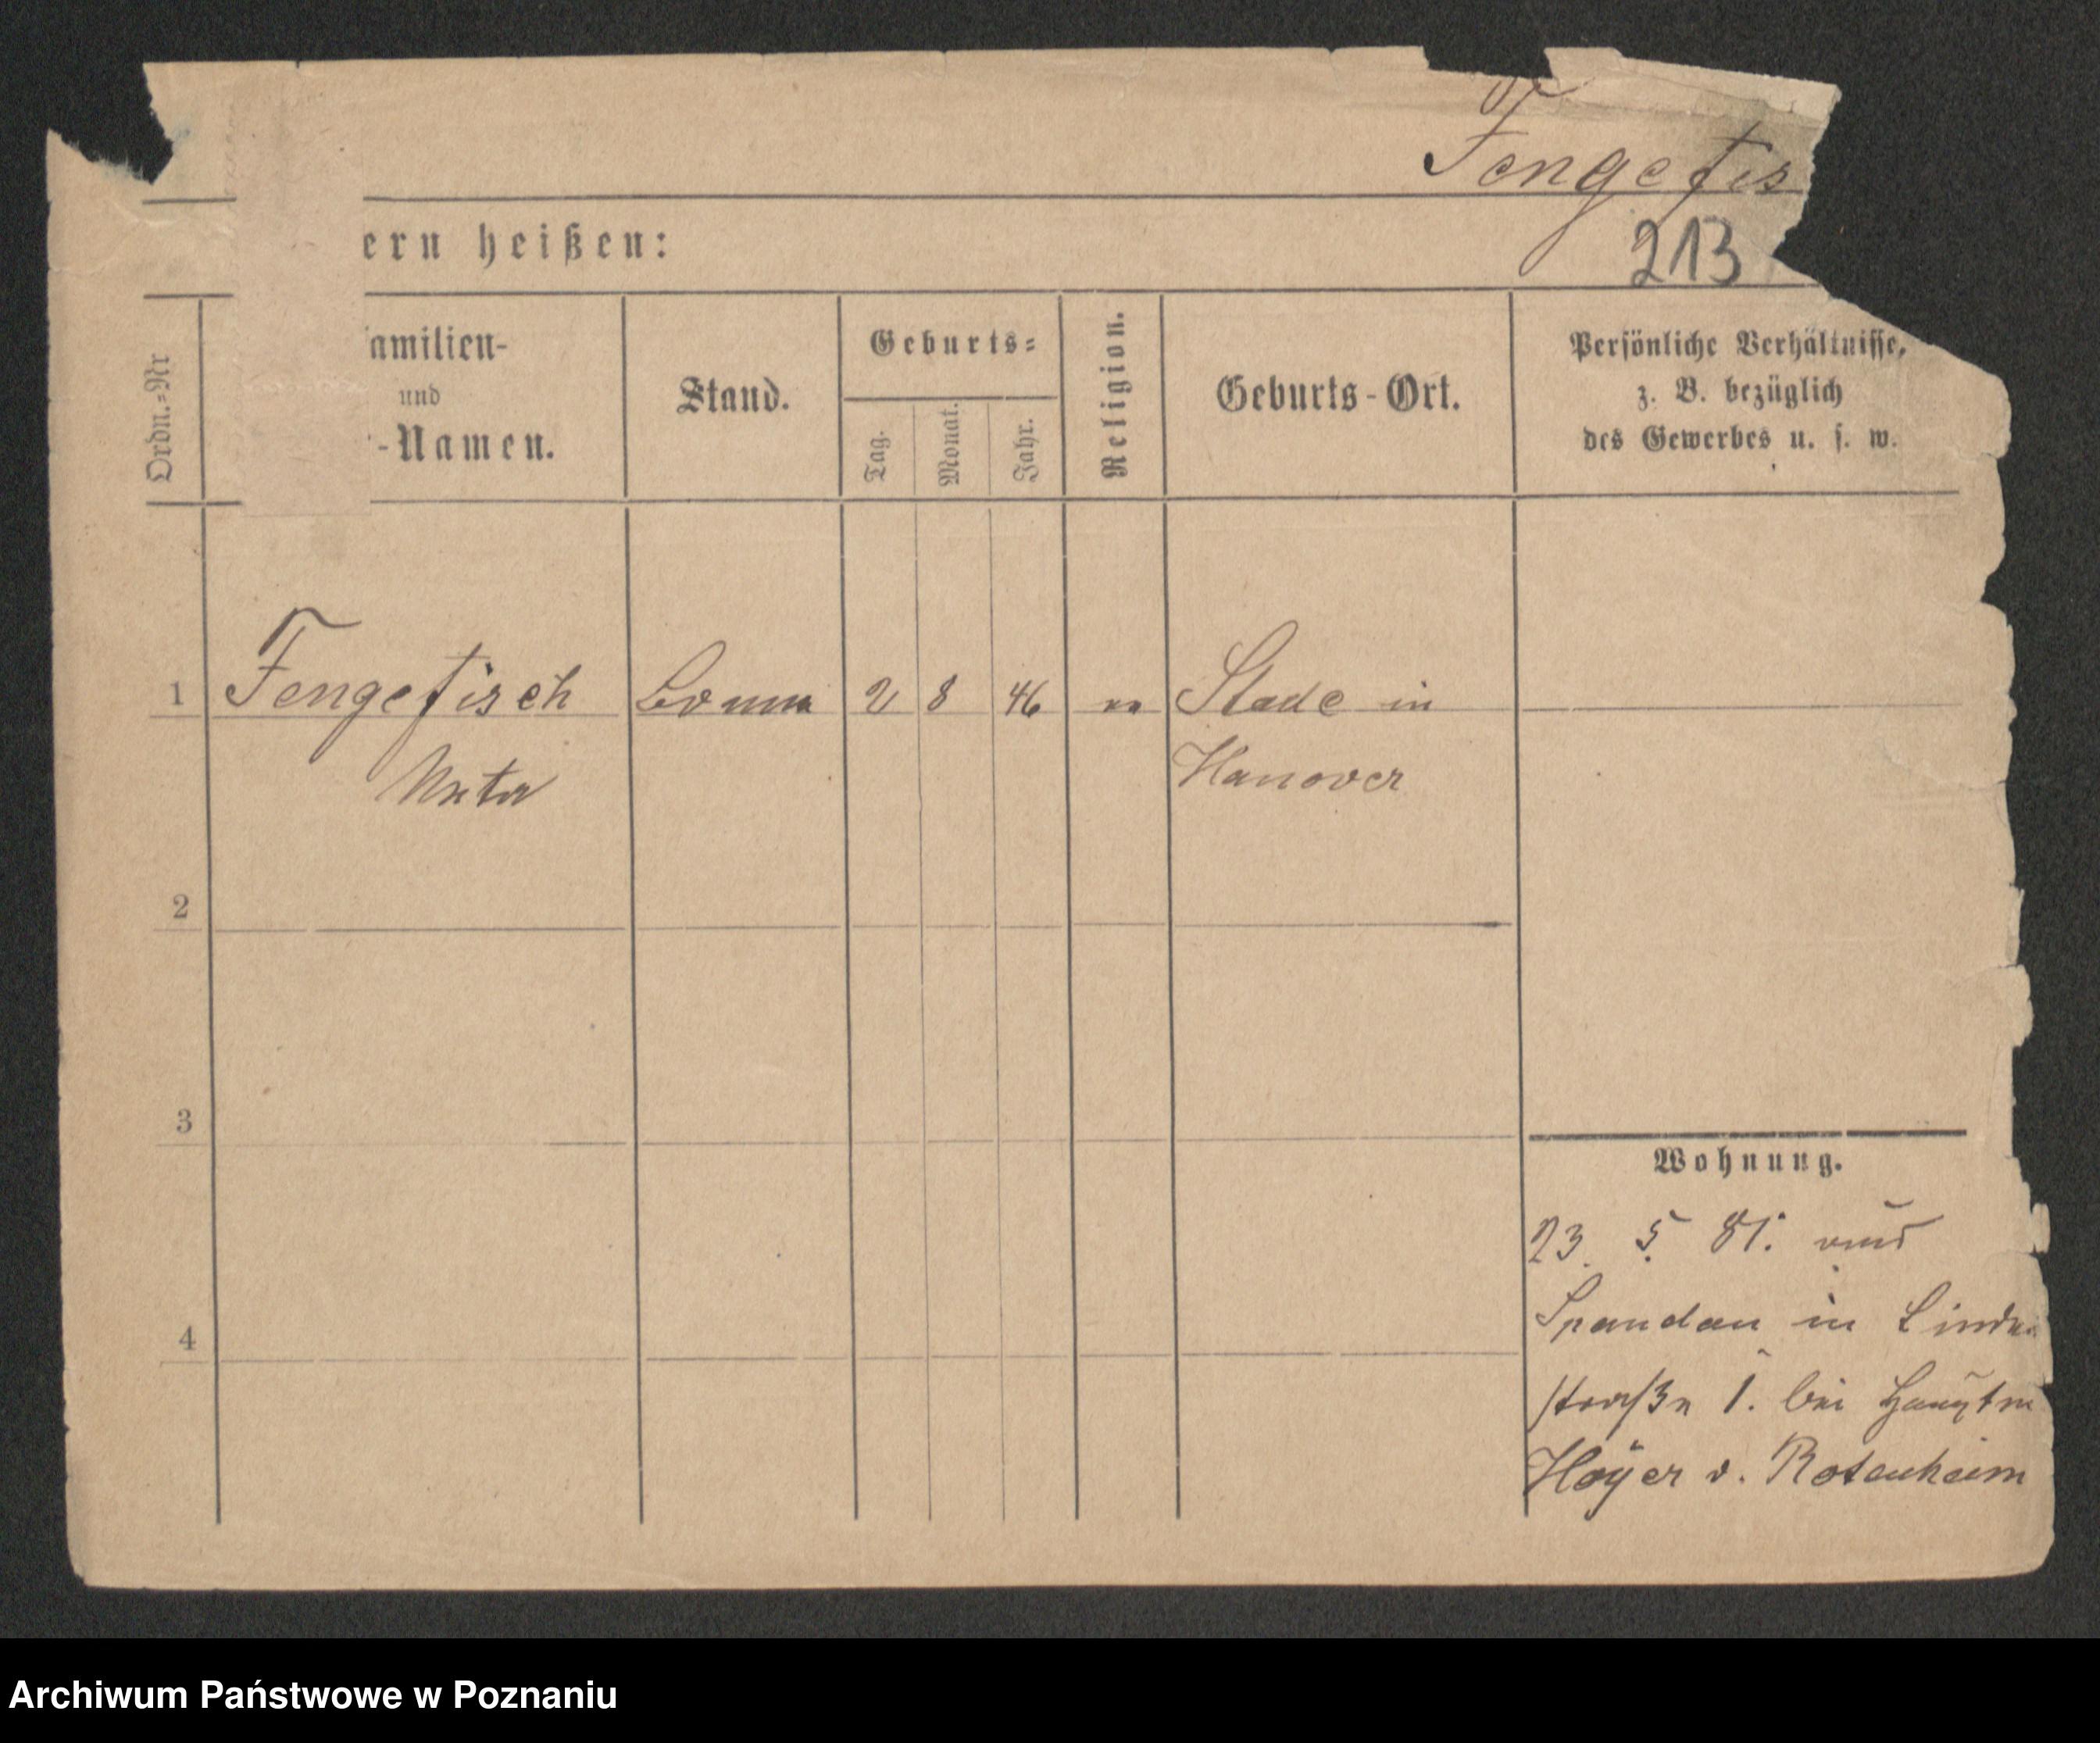 Fengefis
213
ern heißen:
Ordn.=Nr
amilien-
und
-Namen.
Stand.
Geburts=
Tag.
Monat.
Jahr.
Religion.
Geburts-Ort.
Persönliche Verhältnisse,
z. B. bezüglich
des Gewerbes u. s. w.
1 Fengefisch Bonne 2 8 46 ev Stade in
Meta Hanover
2
3
4
Wohnung.
23. 5. 81. aus
Spandau in Linden
straße 1. bei Hauptm
Hoÿer v. Rotenheim
Archiwum Państwowe w Poznaniu